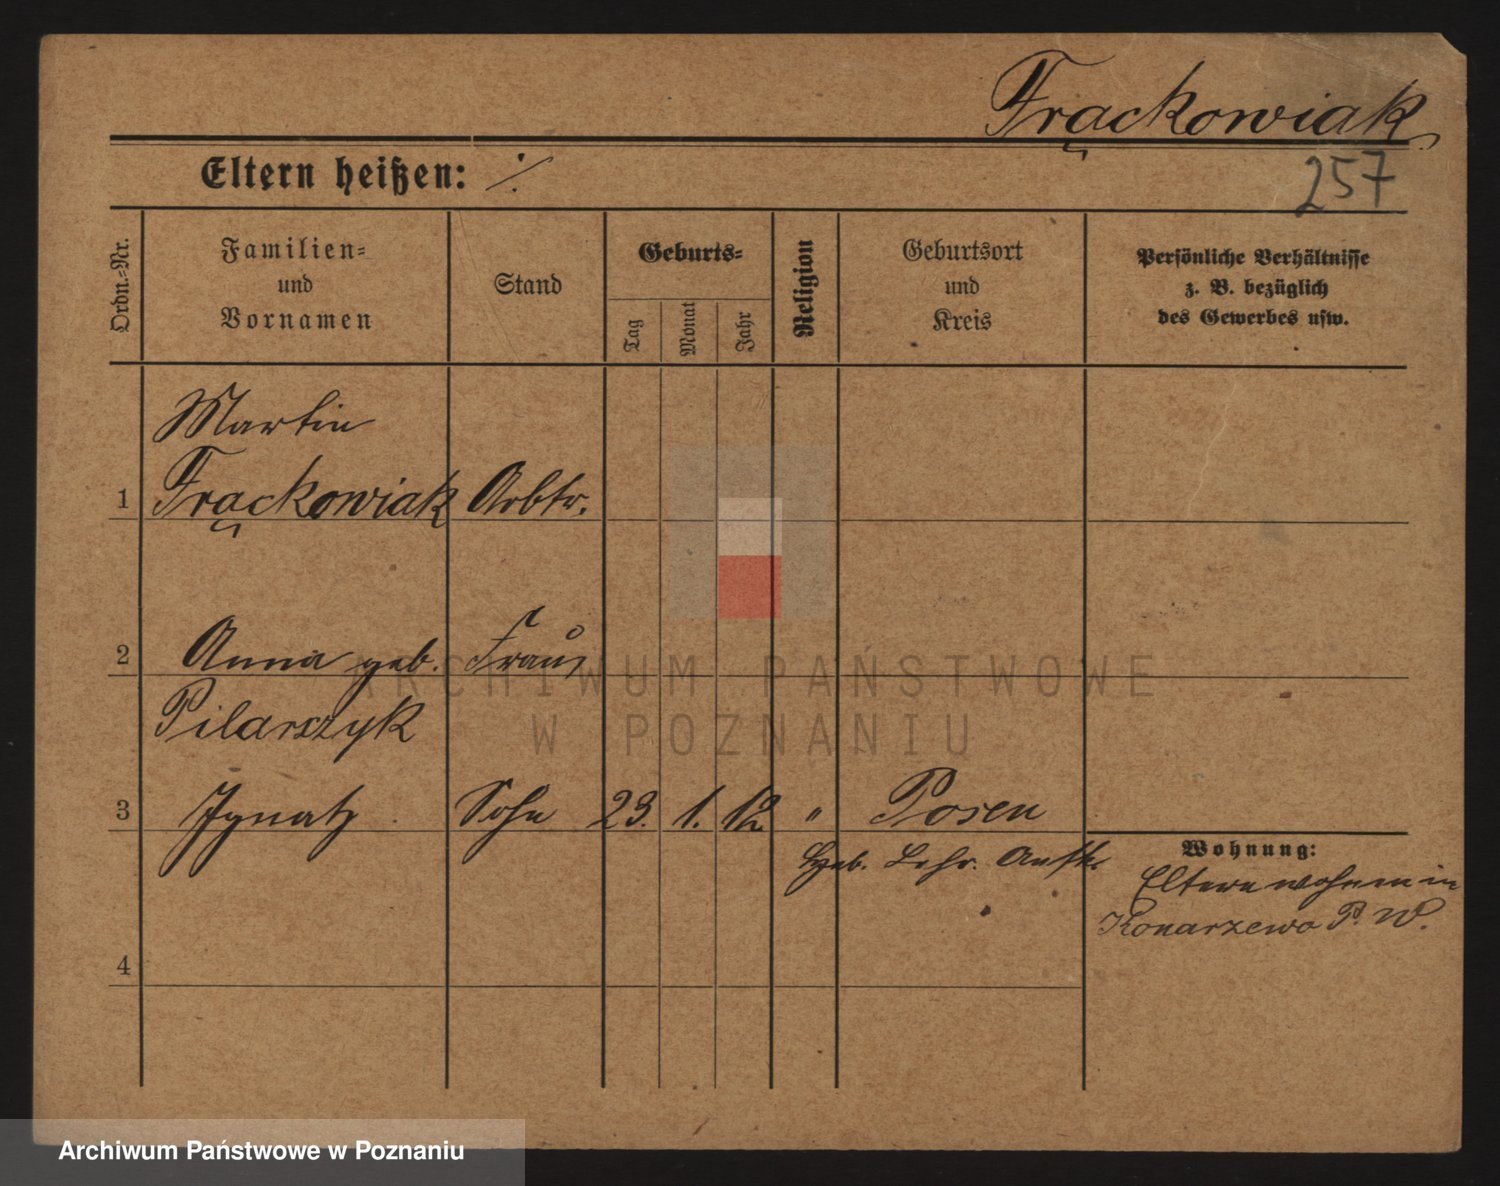 Frąckowiak
Eltern heißen: ./.
257
Ordn.-Nr.
Familien-
und
Vornamen
Stand
Geburts-
Tag
Monat
Jahr
Religion
Geburtsort
und
Kreis
Persönliche Verhältnisse
z. B. bezüglich
des Gewerbes usw.
Martin
1 Frąckowiak Arbtr.
2 Anna geb. Frau
Pilarczyk
3 Ignatz Sohn 23. 1. 12. " Posen
geb. Lehr. Anst.
Wohnung:
Eltern wohnen in
Konarzewo P. W.
4
ARCHIWUM PAŃSTWOWE
W POZNANIU
Archiwum Państwowe w Poznaniu